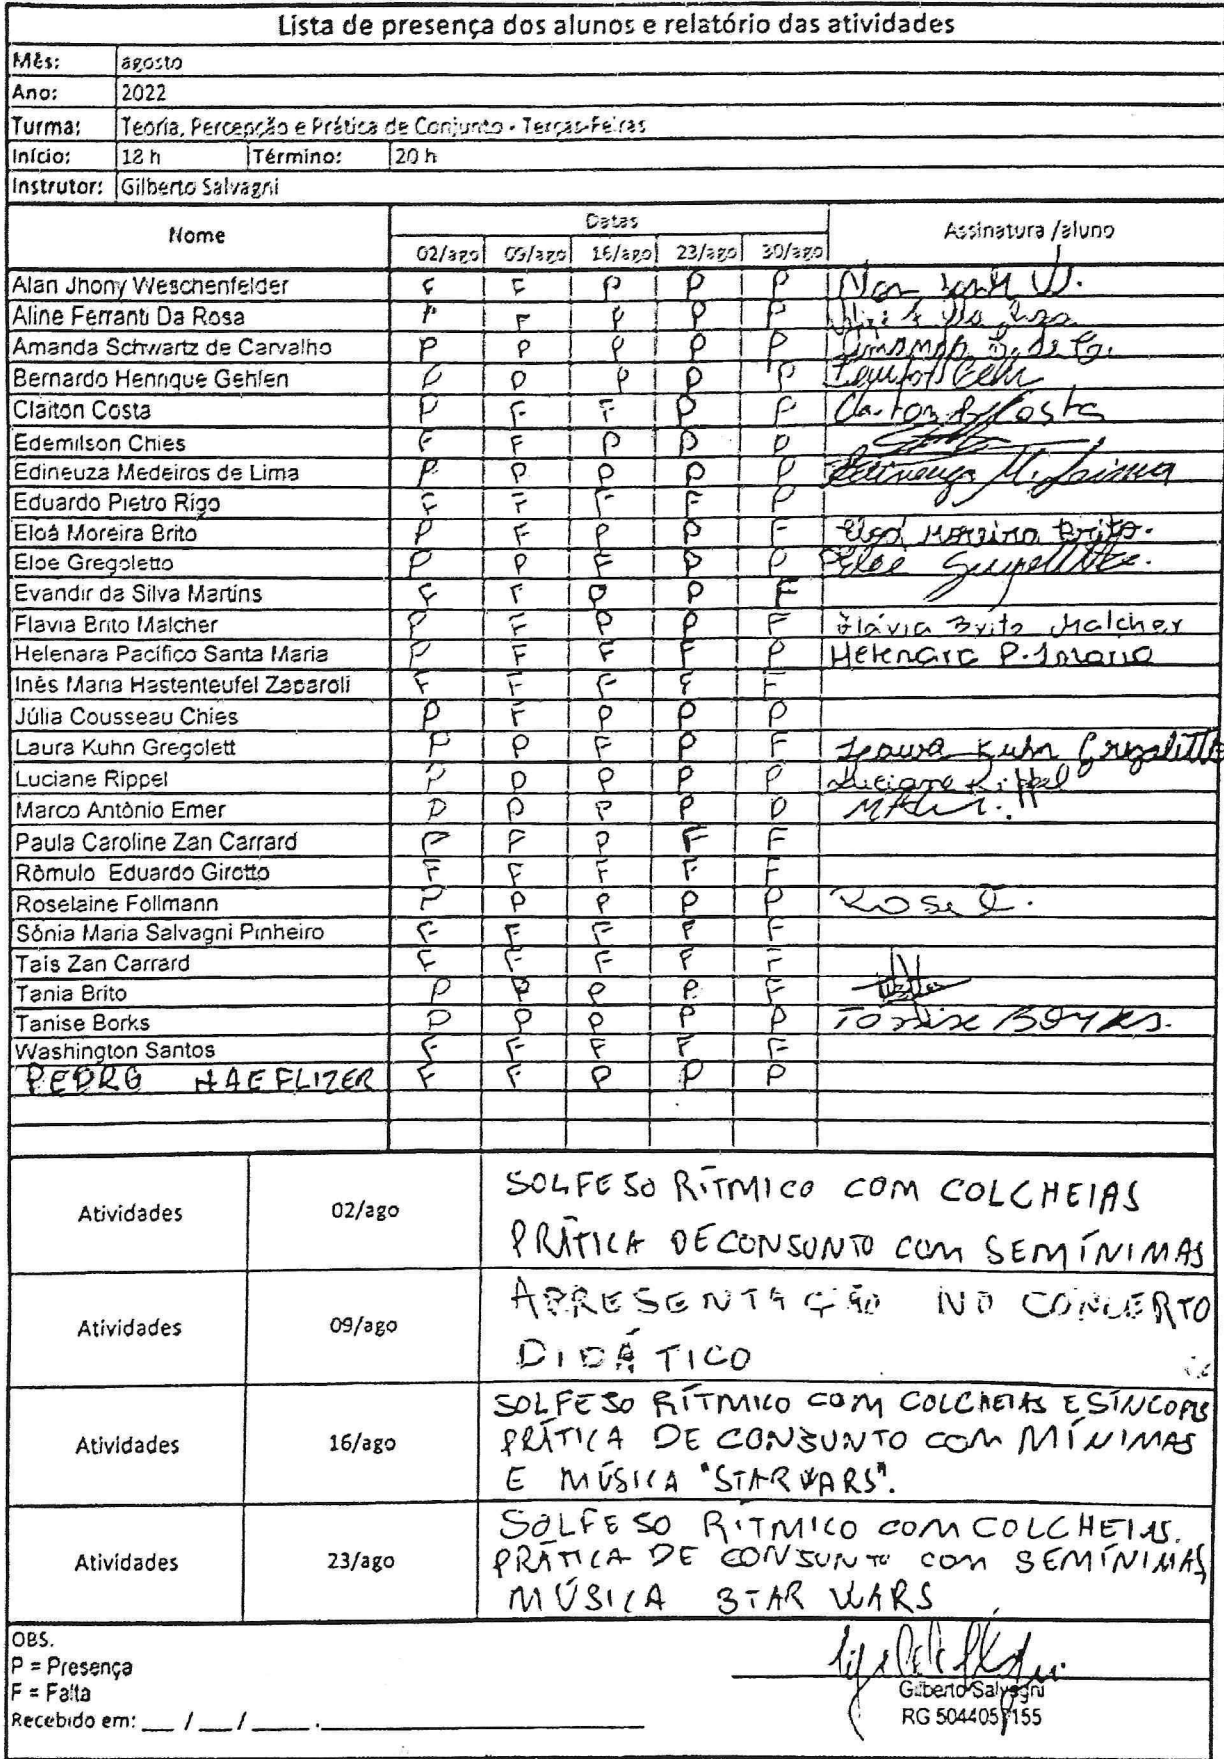 Lista de presença dos alunos e relatório das atividades
Mês: agosto
Ano: 2022
Turma: Teoria, Percepção e Prática de Conjunto - Terças-Feiras
Início: 18 h Término: 20 h
Instrutor: Gilberto Salvagni
Nome Datas Assinatura /aluno
02/ago 09/ago 16/ago 23/ago 30/ago
Alan Jhony Weschenfelder F F P P P
Aline Ferranti Da Rosa P F P P P
Amanda Schwartz de Carvalho P P P P P
Bernardo Henrique Gehlen P P P P P
Claiton Costa P F F P F Claiton Costa
Edemilson Chies F F P P P
Edineuza Medeiros de Lima P P P P P Edineuza M. Lima
Eduardo Pietro Rigo F F F F P
Eloá Moreira Brito P F P P F Eloá Moreira Brito.
Eloe Gregoletto P P F P P Eloe
Evandir da Silva Martins F F P P F
Flavia Brito Malcher P F P P F Flávia Brito Malcher
Helenara Pacífico Santa Maria P F F F P Helenara P.
Inês Maria Hastenteufel Zaparoli F F F F F
Júlia Cousseau Chies P F P P P
Laura Kuhn Gregolett P P F P F Laura Kuhn Gregoletto
Luciane Rippel P P P P P Luciane Rippel
Marco Antônio Emer P P P P P
Paula Caroline Zan Carrard P P P F F
Rômulo Eduardo Girotto F F F F F
Roselaine Follmann P P P P P Rose
Sônia Maria Salvagni Pinheiro F F F F F
Tais Zan Carrard F F F F F
Tania Brito P P P P F
Tanise Borks P P P P P Tanise Borks.
Washington Santos F F F F F
PEDRO HAEFLIZER F F P P P
Atividades 02/ago SOLFESO RÍTMICO COM COLCHEIAS
PRÁTICA DE CONSUNTO COM SEMÍNIMAS
Atividades 09/ago APRESENTAÇÃO NO CONCERTO
DIDÁTICO
Atividades 16/ago SOLFESO RÍTMICO COM COLCHEIAS E SÍNCOPES
PRÁTICA DE CONSUNTO COM MÍNIMAS
E MÚSICA "STAR WARS".
Atividades 23/ago SOLFESO RITMICO COM COLCHEIAS.
PRÁTICA DE CONSUNTO COM SEMÍNIMAS,
MÚSICA STAR WARS
OBS.
P = Presença
F = Falta
Recebido em: __ / __ / ____ .
Gilberto Salvagni
RG 5044057155